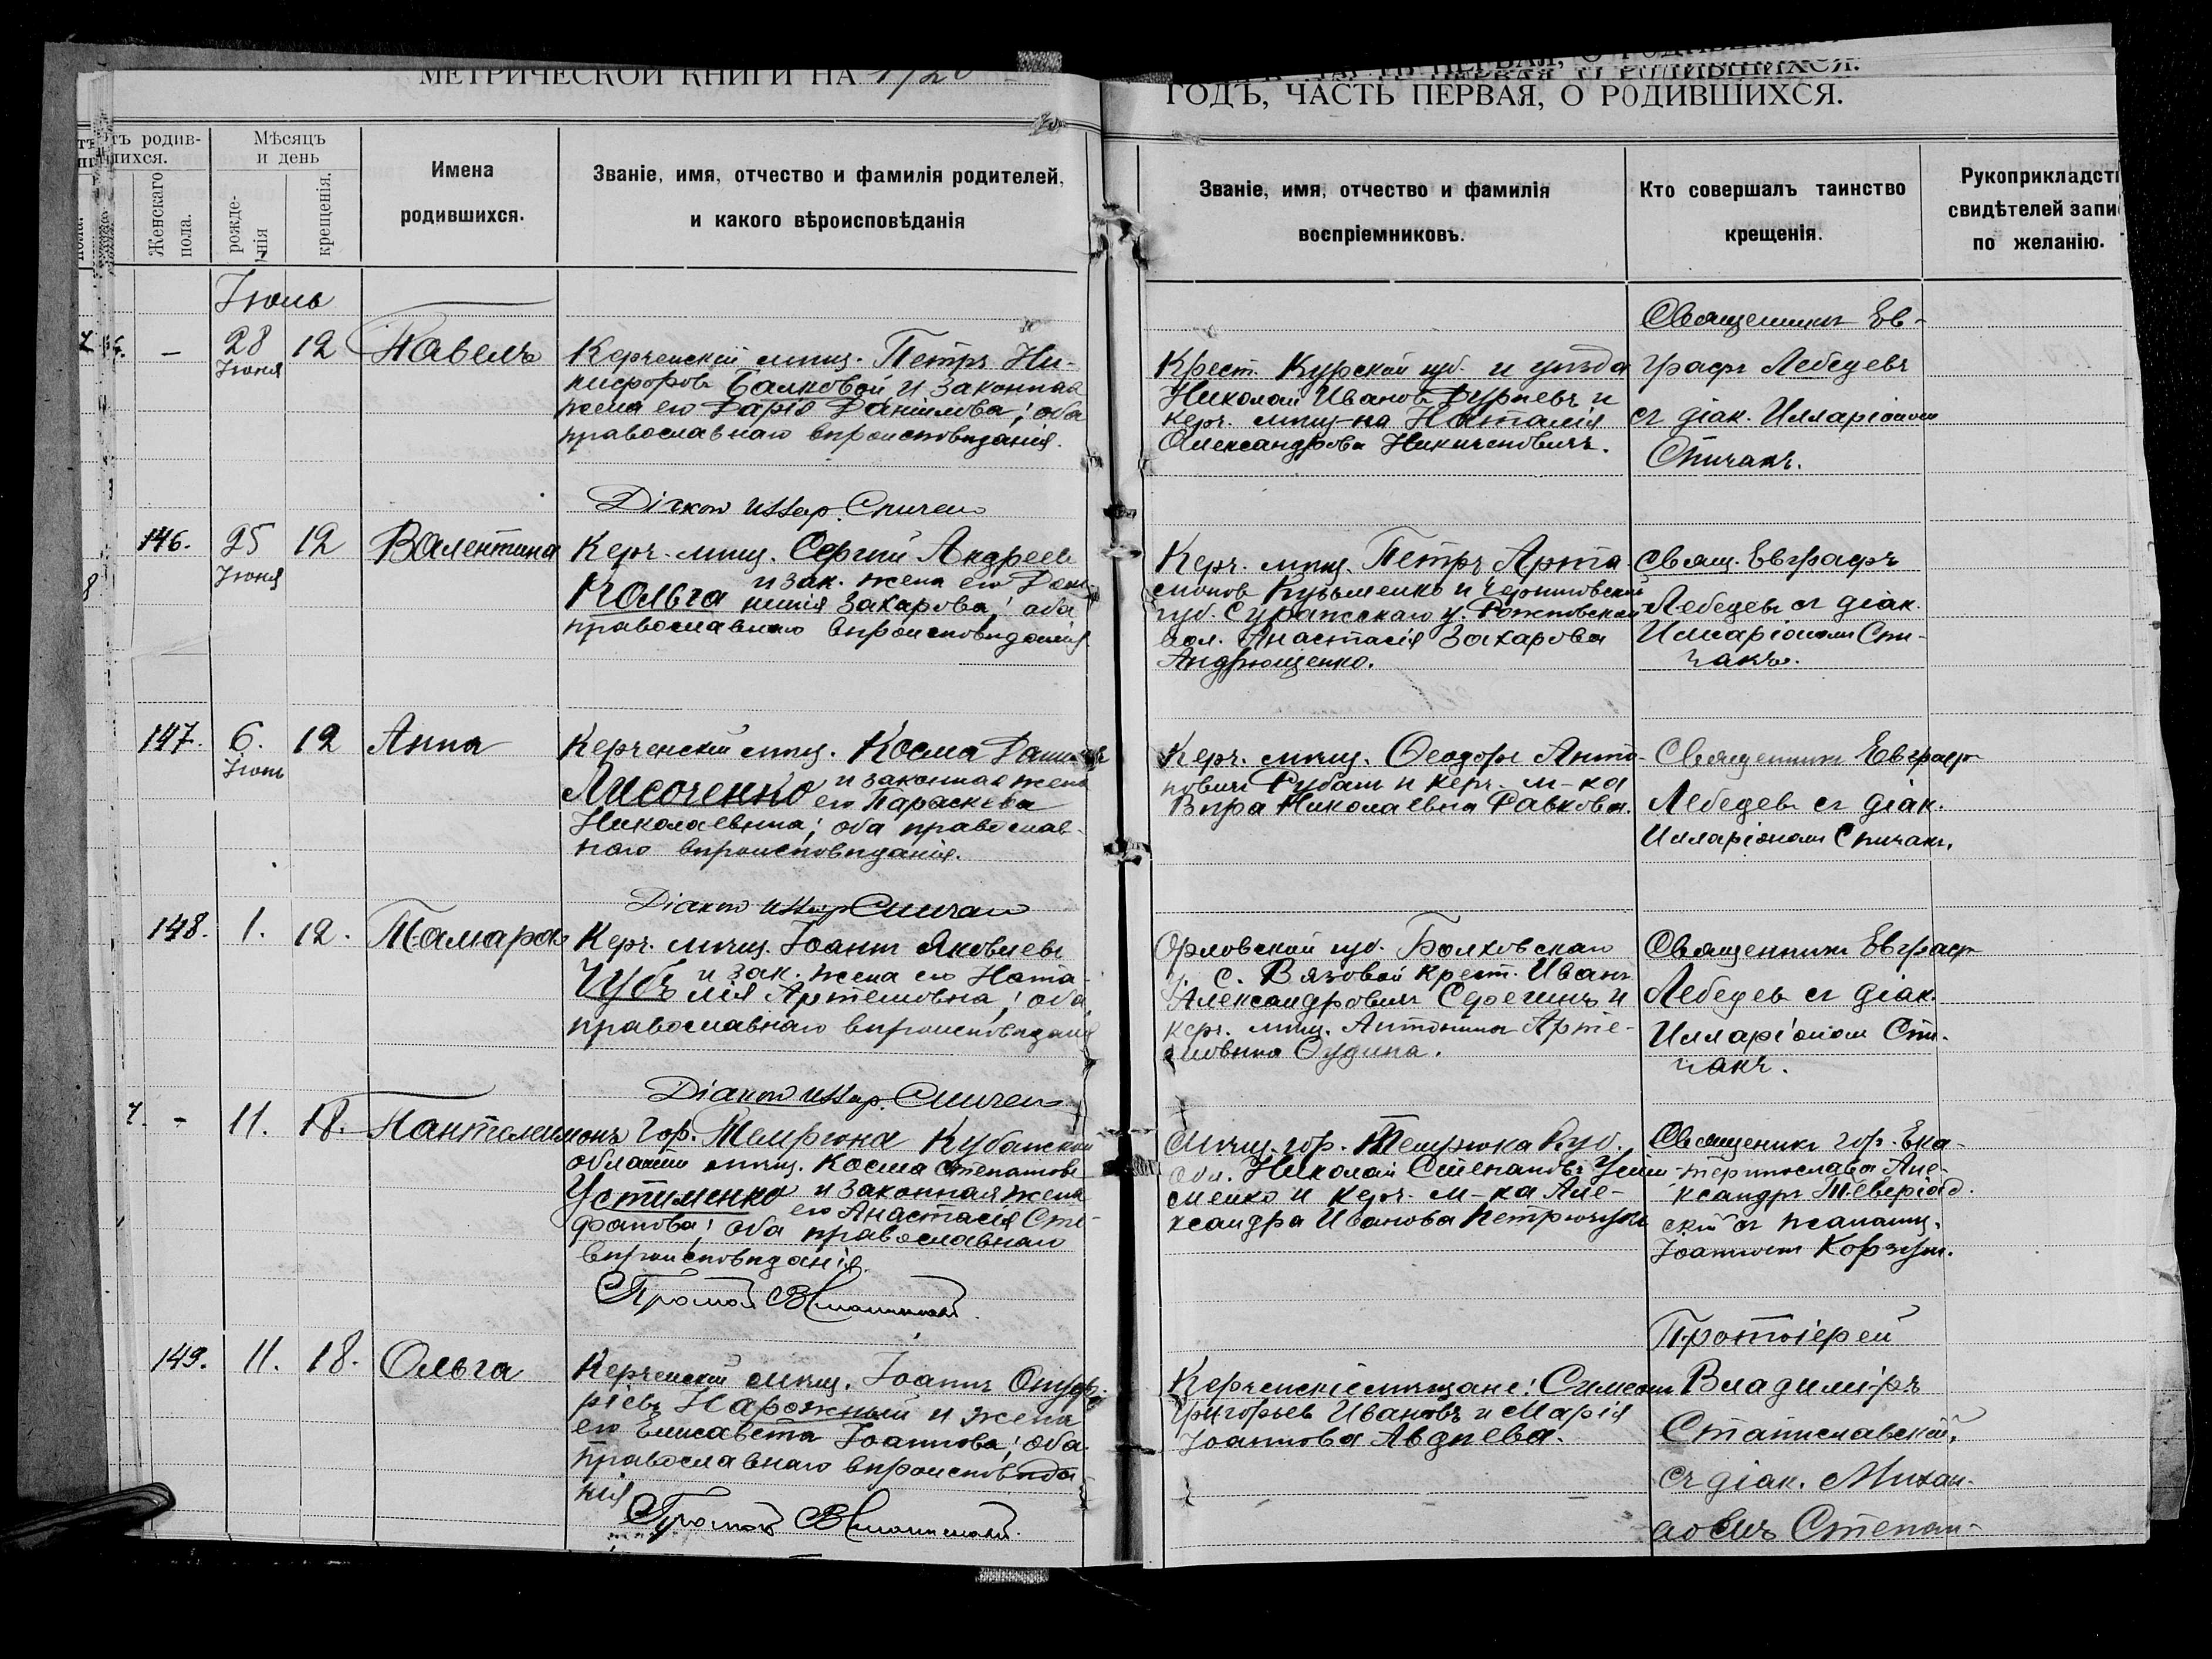 МЕТРИЧЕСКОЙ КНИГИ НА 1920
ГОДЪ, ЧАСТЬ ПЕРВАЯ, О РОДИВШИХСЯ.
тъ родив-
шихся.
Женскаго
пола.
Мѣсяцъ
и день
рожде-
нія
крещенія.
Имена
родившихся.
Званіе, имя, отчество и фамилія родителей,
и какого вѣроисповѣданія
Званіе, имя, отчество и фамилія
воспріемниковъ.
Кто совершалъ таинство
крещенія.
Рукоприкладст
свидѣтелей запи
по желанію.
Іюль
28 Іюня
12
Павелъ
Керченскій мѣщ. Петръ Ни-
кифоровъ Балковой и законная
жена его Дарія Даніилова; оба
православнаго вѣроисповѣданія.
Крест. Курской губ. и уѣзда
Николай Ивановъ и
керч. мѣщ-ка Наталія
Александрова
Священникъ Ев-
графъ Лебедевъ
съ діак. Илларіономъ
Спичакъ.
Діакон Иллар. Спичак
146.
25 Іюня
12
Валентина
Керч. мѣщ. Сергій Андреев
Кольга и зак. жена его Дом-
никія Захарова; оба
православнаго вѣроисповѣданія.
Керч. мѣщ. Петръ Арта-
моновъ Кузьменко и Черниговской
губ. Суражскаго у.
вол. Анастасія Захарова
Андрющенко.
Свящ. Евграфъ
Лебедевъ съ діак.
Илларіономъ Спи-
чакъ.
147.
6. Іюля
12
Анна
Керченскій мѣщ. Косма
Лисоченко и законная жена
его Параскева
Николаевна; оба православ-
наго вѣроисповѣданія.
Керч. мѣщ. Ѳеодоръ Анто-
новичъ Рубанъ и керч. м-ка
Вѣра Николаевна Равкова.
Священникъ Евграфъ
Лебедевъ съ діак.
Илларіономъ Спичакъ.
Діакон Иллар Спичак
148.
1.
12.
Тамара
Керч. мѣщ. Іоаннъ Яковлевъ
Чубъ и зак. жена его Ната-
лія Артемовна; оба
православнаго вѣроисповѣданія
Орловской губ. Болховскаго
у. с. Вязовой крест. Иванъ
Александровичъ Серегинъ и
керч. мѣщ. Антонина Арте-
мовна Дудина.
Священникъ Евграфъ
Лебедевъ съ діак.
Илларіономъ Спи-
чакъ.
Діакон Иллар. Спичак
-
11.
18.
Пантелеимонъ
гор. Темрюка Кубанской
области мѣщ. Косма Степановъ
Устименко и законная жена
его Анастасія Сте-
фанова; оба православнаго
вѣроисповѣданія.
Мѣщ. гор. Темрюка Куб.
обл. Николай Степановъ Усти-
менко и керч. м-ка Але-
ксандра Иванова
Священникъ гор. Ека-
теринослава Але-
ксандръ Тиверіад-
скій съ псаломщ.
Іоанномъ Корзун.
149.
11.
18.
Ольга
Керченскій мѣщ. Іоаннъ Онуф-
ріевъ Нарожный и жена
его Елисавета Іоаннова; оба
православнаго вѣроисповѣда-
нія
Керченскіе мѣщане: Симеонъ
Григорьев Ивановъ и Марія
Іоаннова Авдѣева.
Протоіерей
Владиміръ
Станиславскій,
съ діак. Михаи-
ломъ Степан-